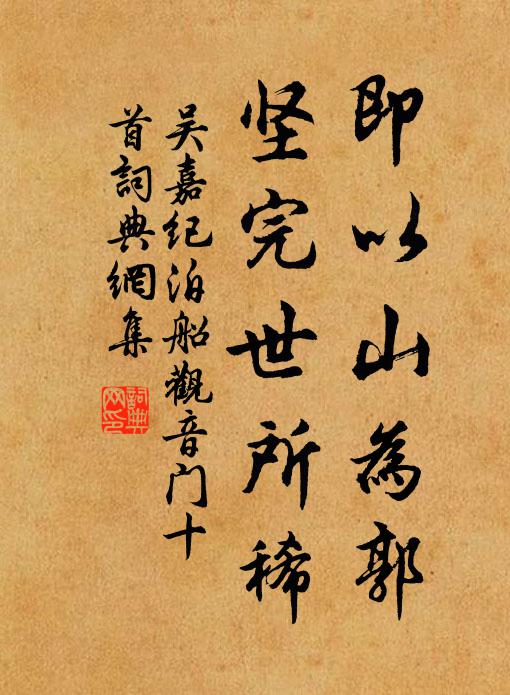 即以山為郭
坚完世所稀
吴嘉纪泊船觀音门十
首詞典網集
詞典网印